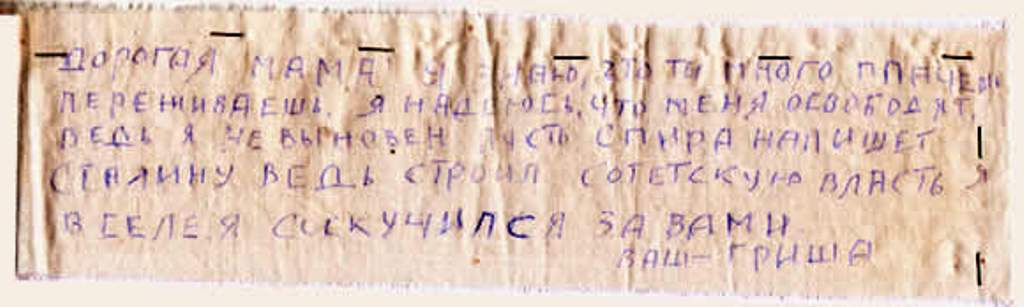 ДОРОГАЯ МАМА Я ЗНАЮ, ЧТО ТЫ МНОГО ПЛАЧЕШЬ
ПЕРЕЖИВАЕШЬ. Я НАДЕЮСЬ, ЧТО МЕНЯ ОСВОБОДЯТ,
ВЕДЬ Я НЕ ВЫНОВЕН ПУСТЬ СПИРА НАПИШЕТ
СТАЛИНУ ВЕДЬ СТРОИЛ СОТЕТСКУЮ ВЛАСТЬ Я
В СЕЛЕ. Я СОСКУЧИЛСЯ ЗА ВАМИ.
ВАШ- ГРИША